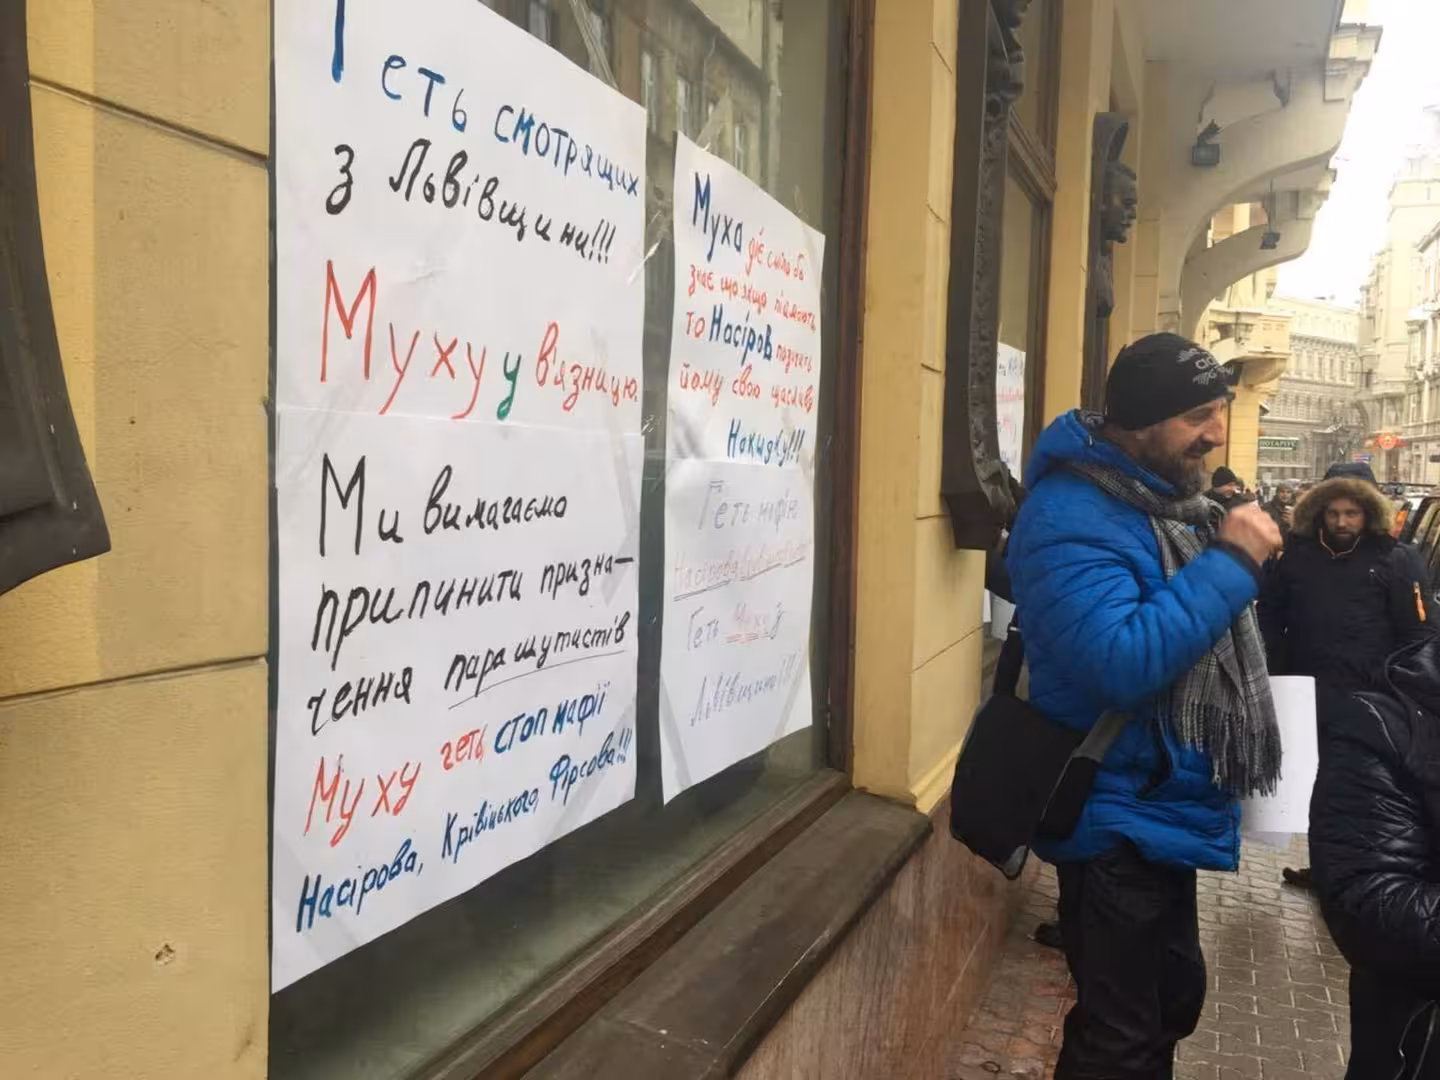 Геть смотрящих
з Львівщини!!!
Муху у в'язницю.
Ми вимагаємо
припинити призна-
чення парашутистів
Муху геть, стоп мафії
Насірова, Крівіцького, Фірсова!!!
Муха діє
знає що якщо
то Насіров позичить
йому свою щасливу
Накидку!!!
Геть мафію
Геть Муху з
Львівщини!!!
НОТАРІУС